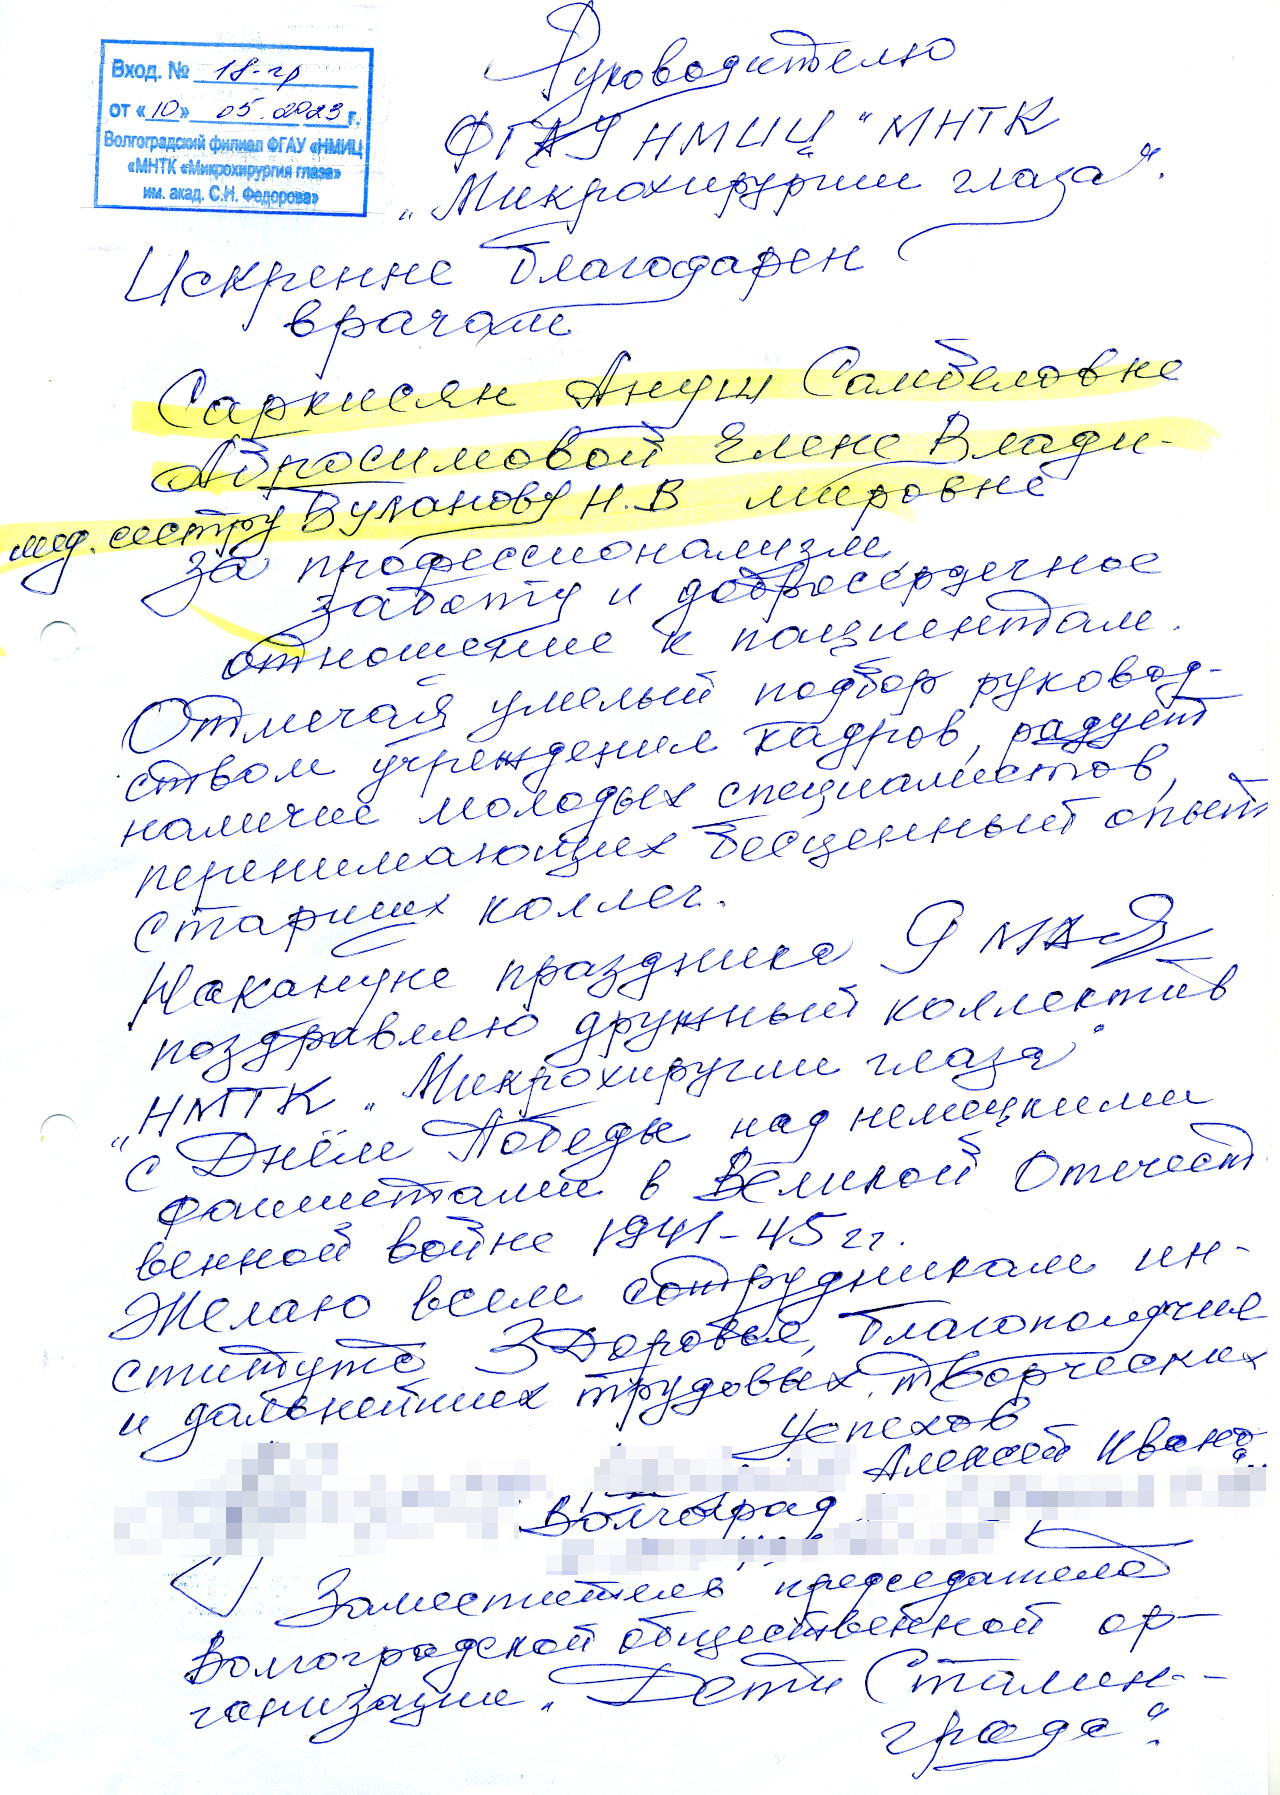 Вход. № 18-гр
от «10» 05.2023 г.
Волгоградский филиал ФГАУ «НМИЦ
«МНТК «Микрохирургия глаза»
им. акад. С.Н. Федорова»
Руководителю
ФГАУ НМИЦ "МНТК
„Микрохирургии глаза".
Искренне благодарен
врачам
Саркисян Ануш Самбеловне
Абросимовой Елене Влади-
мировне
мед. сестру Буланову Н.В
за профессионализм,
заботу и добросердечное
отношение к пациентам.
Отмечая умелый подбор руковод-
ством учреждения кадров, радует
наличие молодых специалистов,
перенимающих бесценный опыт
старших коллег.
Накануне праздника 9 МАЯ
поздравляю дружный коллектив
„НМТК „Микрохирургии глаза"
с Днём Победы над немецкими
фашистами в Великой Отечест
венной войне 1941-45 гг.
Желаю всем сотрудникам ин-
ститута Здоровья, благополучия
и дальнейших трудовых, творческих
успехов
Алексей Ивано
Волгоград
Заместитель председателя
Волгоградской общественной ор-
ганизации „Дети Сталин-
града".